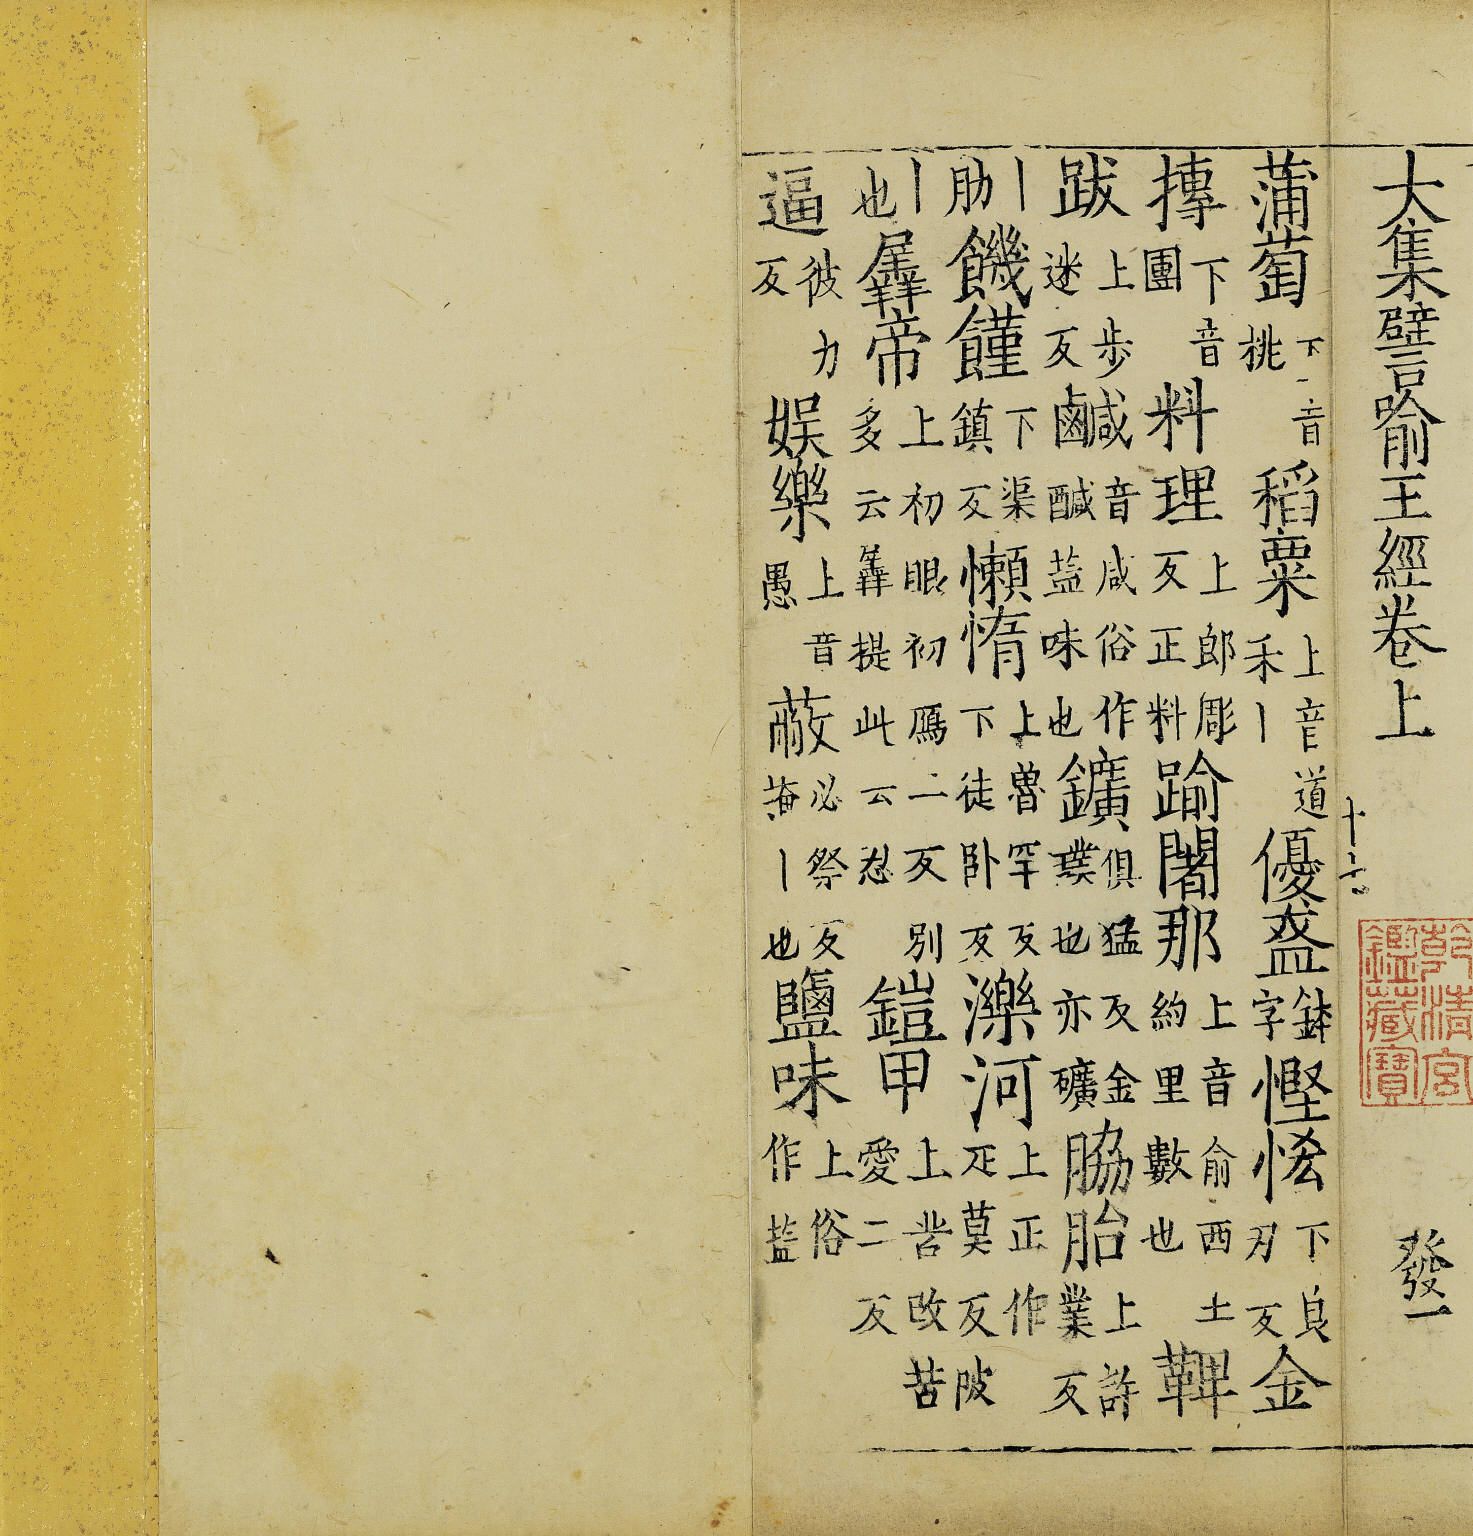 大集譬喻王經卷上 發一
十六
乾清宮鑑藏寶
蒲萄下音挑 稻粟上音道禾丨 優盋鉢字 慳悋下良刃反 金
摶下音團 料理上郎彫反正料 踰闍那上音俞西土約里數也 鞞
跋上步迷反 鹹鹵咸音咸俗作醎葢味也 鑛俱猛反金璞也亦礦 脇胎上許業反
丨肋 饑饉下渠鎮反 懶惰上魯罕反下徒卧反 濼河上正作陂疋莫反
丨也 羼帝上初眼初鴈二反別多云羼提此云忍 鎧甲上苦改苦愛二反
逼彼力反 娛樂上音愚 蔽必祭反掩丨也 鹽味上俗作塩